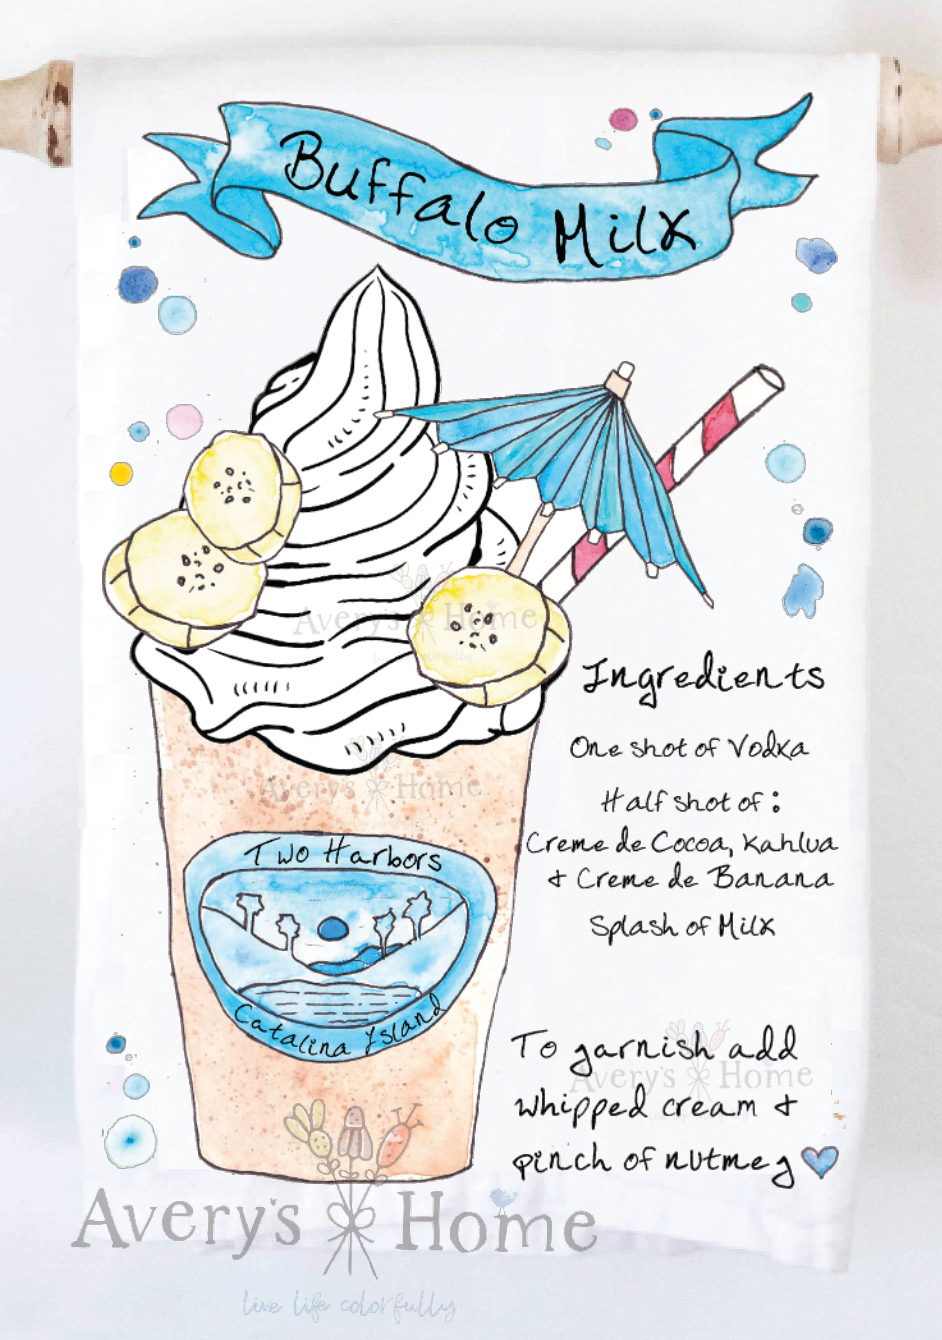 Buffalo Milk
Avery's Home
live life colorfully
Ingredients
One shot of Vodka
Half shot of :
Creme de Cocoa, Kahlua
+ Creme de Banana
Splash of Milk
Avery's Home
Two Harbors
Catalina Island
To garnish add
Avery's Home
whipped cream +
pinch of nutmeg
Avery's Home
live life colorfully